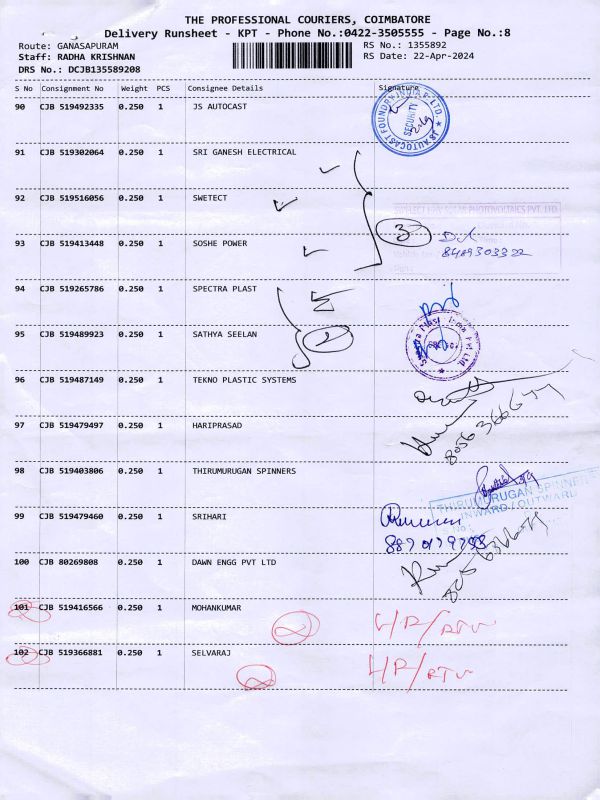 THE PROFESSIONAL COURIERS, COIMBATORE
Delivery Runsheet - KPT - Phone No.:0422-3505555 - Page No.:8
Route: GANASAPURAM
RS No.: 1355892
Staff: RADHA KRISHNAN
RS Date: 22-Apr-2024
DRS No.: DCJB135589208
S No Consignment No Weight PCS Consignee Details Signature
90 CJB 519492335 0.250 1 JS AUTOCAST
SECURITY
91 CJB 519302064 0.250 1 SRI GANESH ELECTRICAL
92 CJB 519516056 0.250 1 SWETECT
PHOTOVOLTAICS PVT. LTD.
93 CJB 519413448 0.250 1 SOSHE POWER
3
8489303322
94 CJB 519265786 0.250 1 SPECTRA PLAST
95 CJB 519489923 0.250 1 SATHYA SEELAN
2
96 CJB 519487149 0.250 1 TEKNO PLASTIC SYSTEMS
97 CJB 519479497 0.250 1 HARIPRASAD
98 CJB 519403806 0.250 1 THIRUMURUGAN SPINNERS
THIRUMURUGAN SPINNERS
INWARD / OUTWARD
99 CJB 519479460 0.250 1 SRIHARI
100 CJB 80269808 0.250 1 DAWN ENGG PVT LTD
101 CJB 519416566 0.250 1 MOHANKUMAR
102 CJB 519366881 0.250 1 SELVARAJ